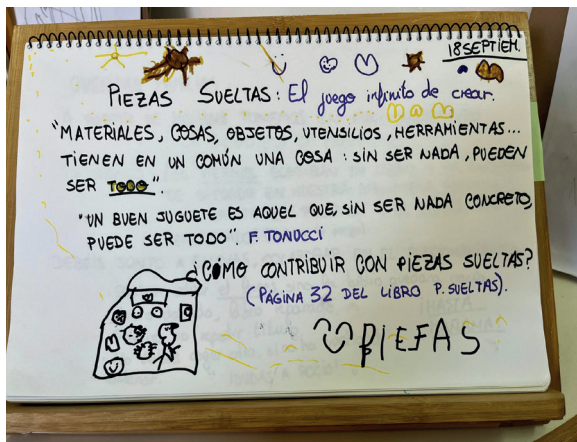 18 SEPTIEM.
PIEZAS SUELTAS: El juego infinito de crear.
"MATERIALES, COSAS, OBJETOS, UTENSILIOS, HERRAMIENTAS...
TIENEN EN UN COMÚN UNA COSA: SIN SER NADA, PUEDEN
SER TODO".
"UN BUEN JUGUETE ES AQUEL QUE, SIN SER NADA CONCRETO,
PUEDE SER TODO". F. TONUCCI
¿CÓMO CONTRIBUIR CON PIEZAS SUELTAS?
(PÁGINA 32 DEL LIBRO P. SUELTAS).
PIEFAS